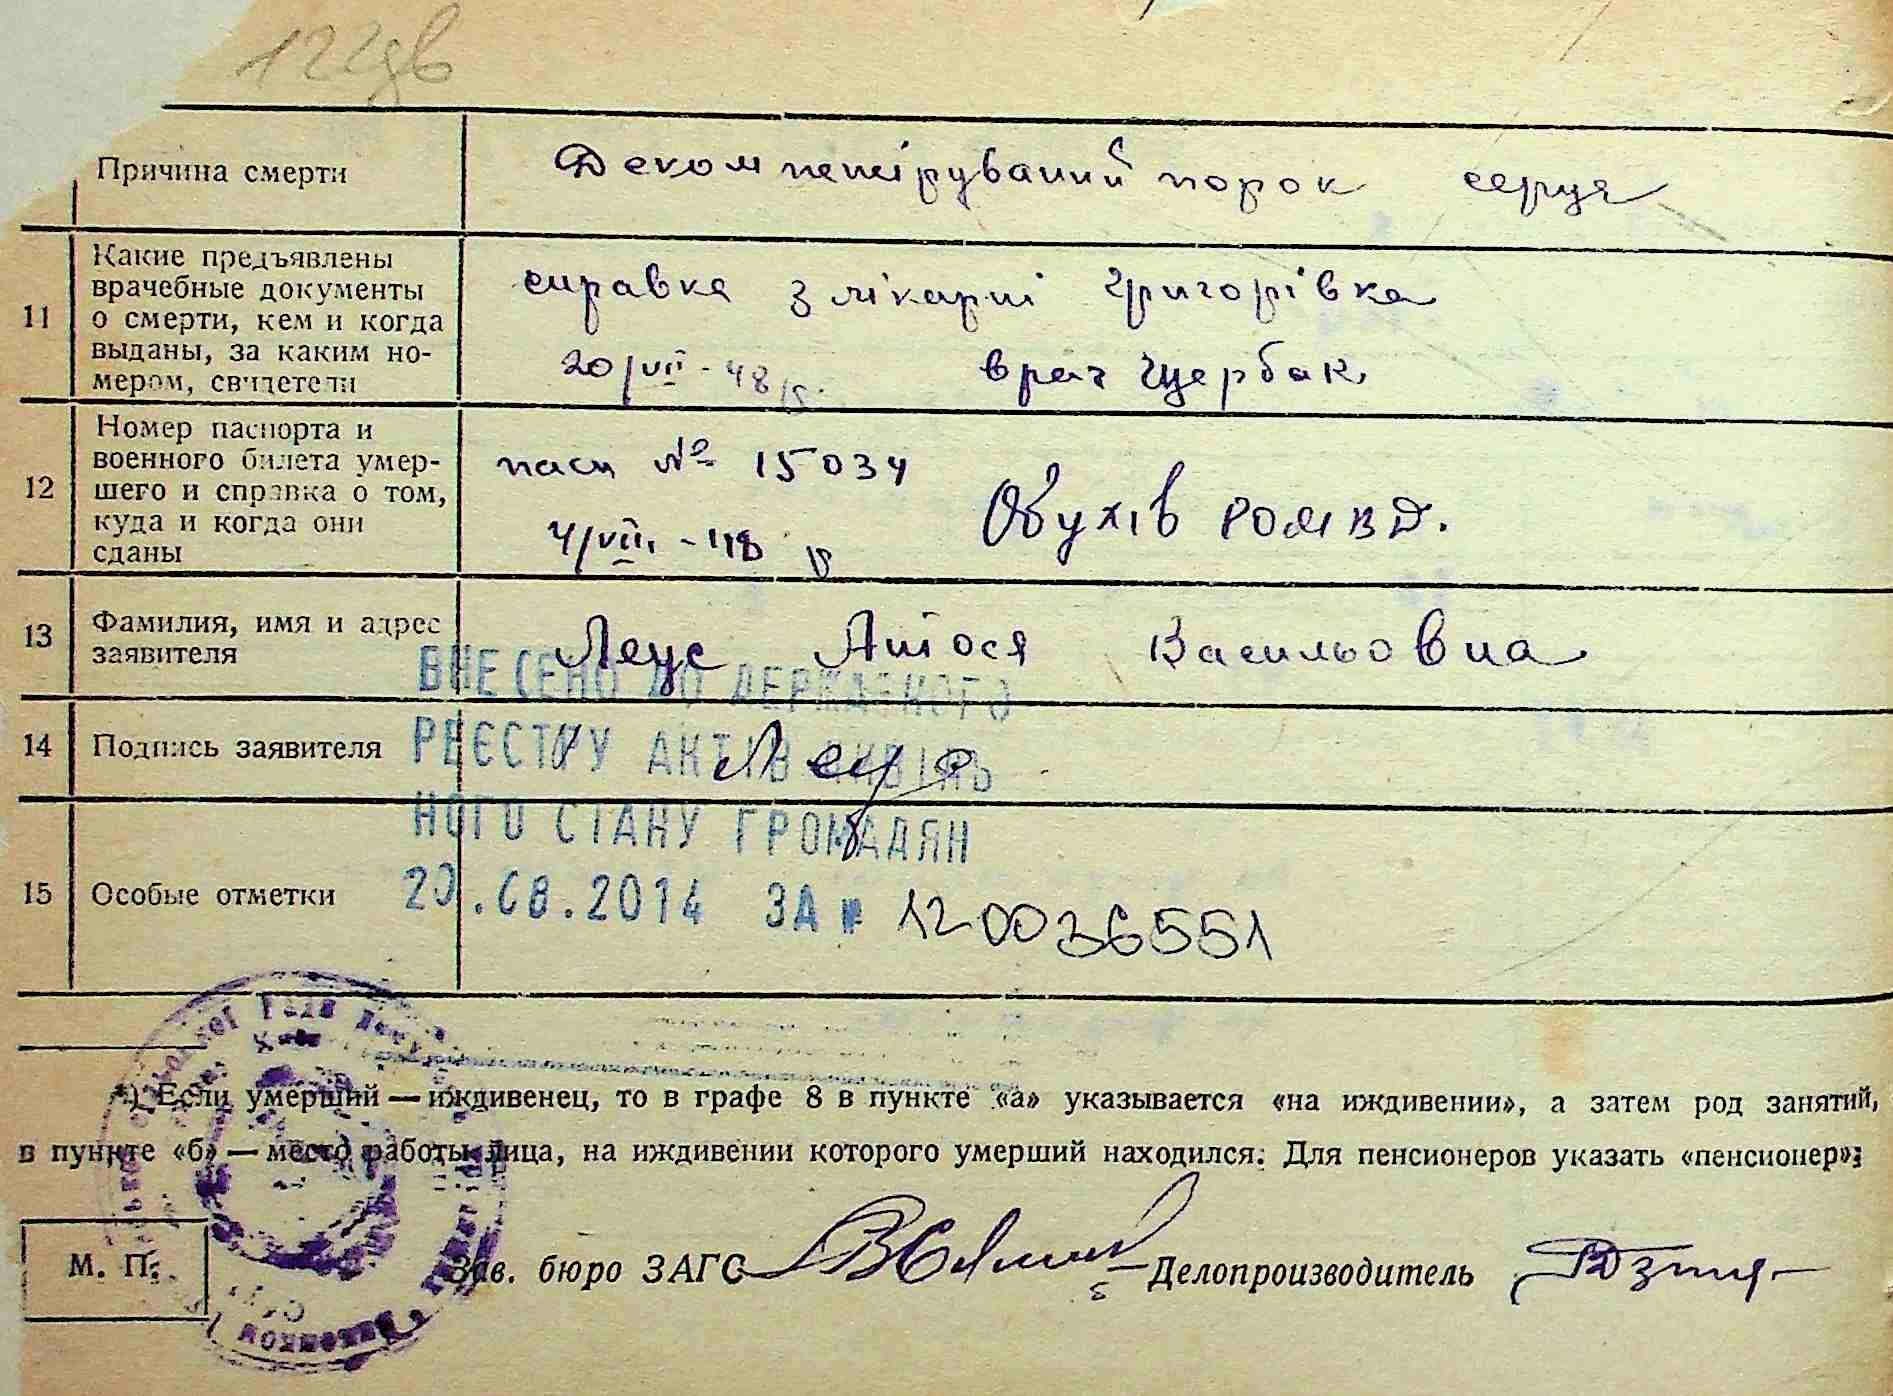 122дв
Причина смерти
Декомпенсірування порок серця
11
Какие предъявлены
врачебные документы
о смерти, кем и когда
выданы, за каким но-
мером, свидетели
справка з лікарні Григорівка
20/VII - 48 р. врач Щербак
12
Номер паспорта и
военного билета умер-
шего и справка о том,
куда и когда они
сданы
пасп № 15034
4/VIII - 48 р Обухів РОМВД.
13
Фамилия, имя и адрес
заявителя
Леус Васильовна
14
Подпись заявителя
Леус
15
Особые отметки
ВНЕСЕНО ДО ДЕРЖАВНОГО
РЕЄСТРУ АКТІВ ЦИВІЛЬ
НОГО СТАНУ ГРОМАДЯН
20.08.2014 ЗА № 12 00 36551
*) Если умерший — иждивенец, то в графе 8 в пункте «а» указывается «на иждивении», а затем род занятий,
в пункте «б» — место работы лица, на иждивении которого умерший находился. Для пенсионеров указать «пенсионер».
М. П.
Зав. бюро ЗАГС
Делопроизводитель